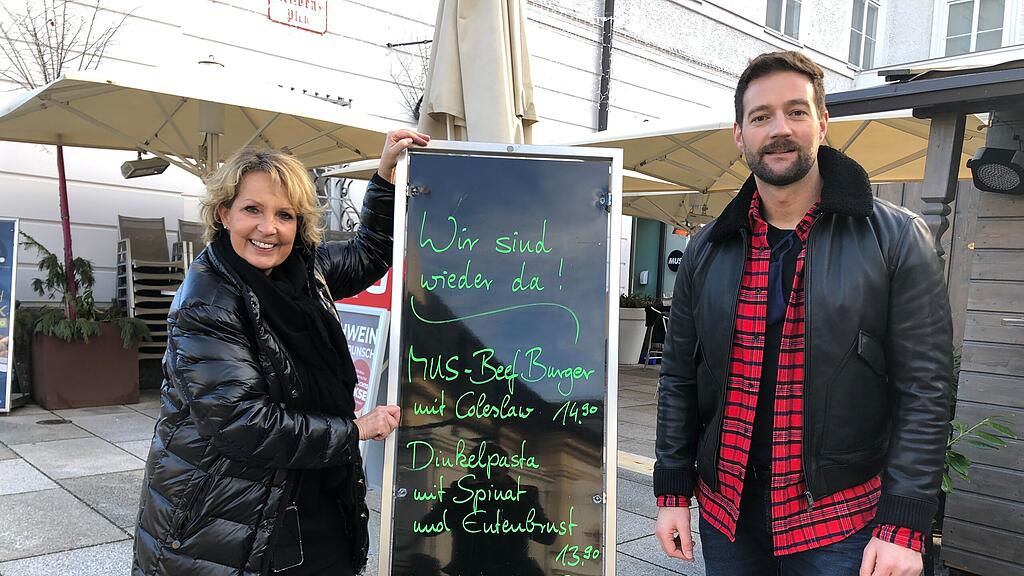 Wir sind
wieder da!
MUS-Beef Burger
mit Coleslaw 14.90
Dinkelpasta
mit Spinat
und Entenbrust
13.90
MUS